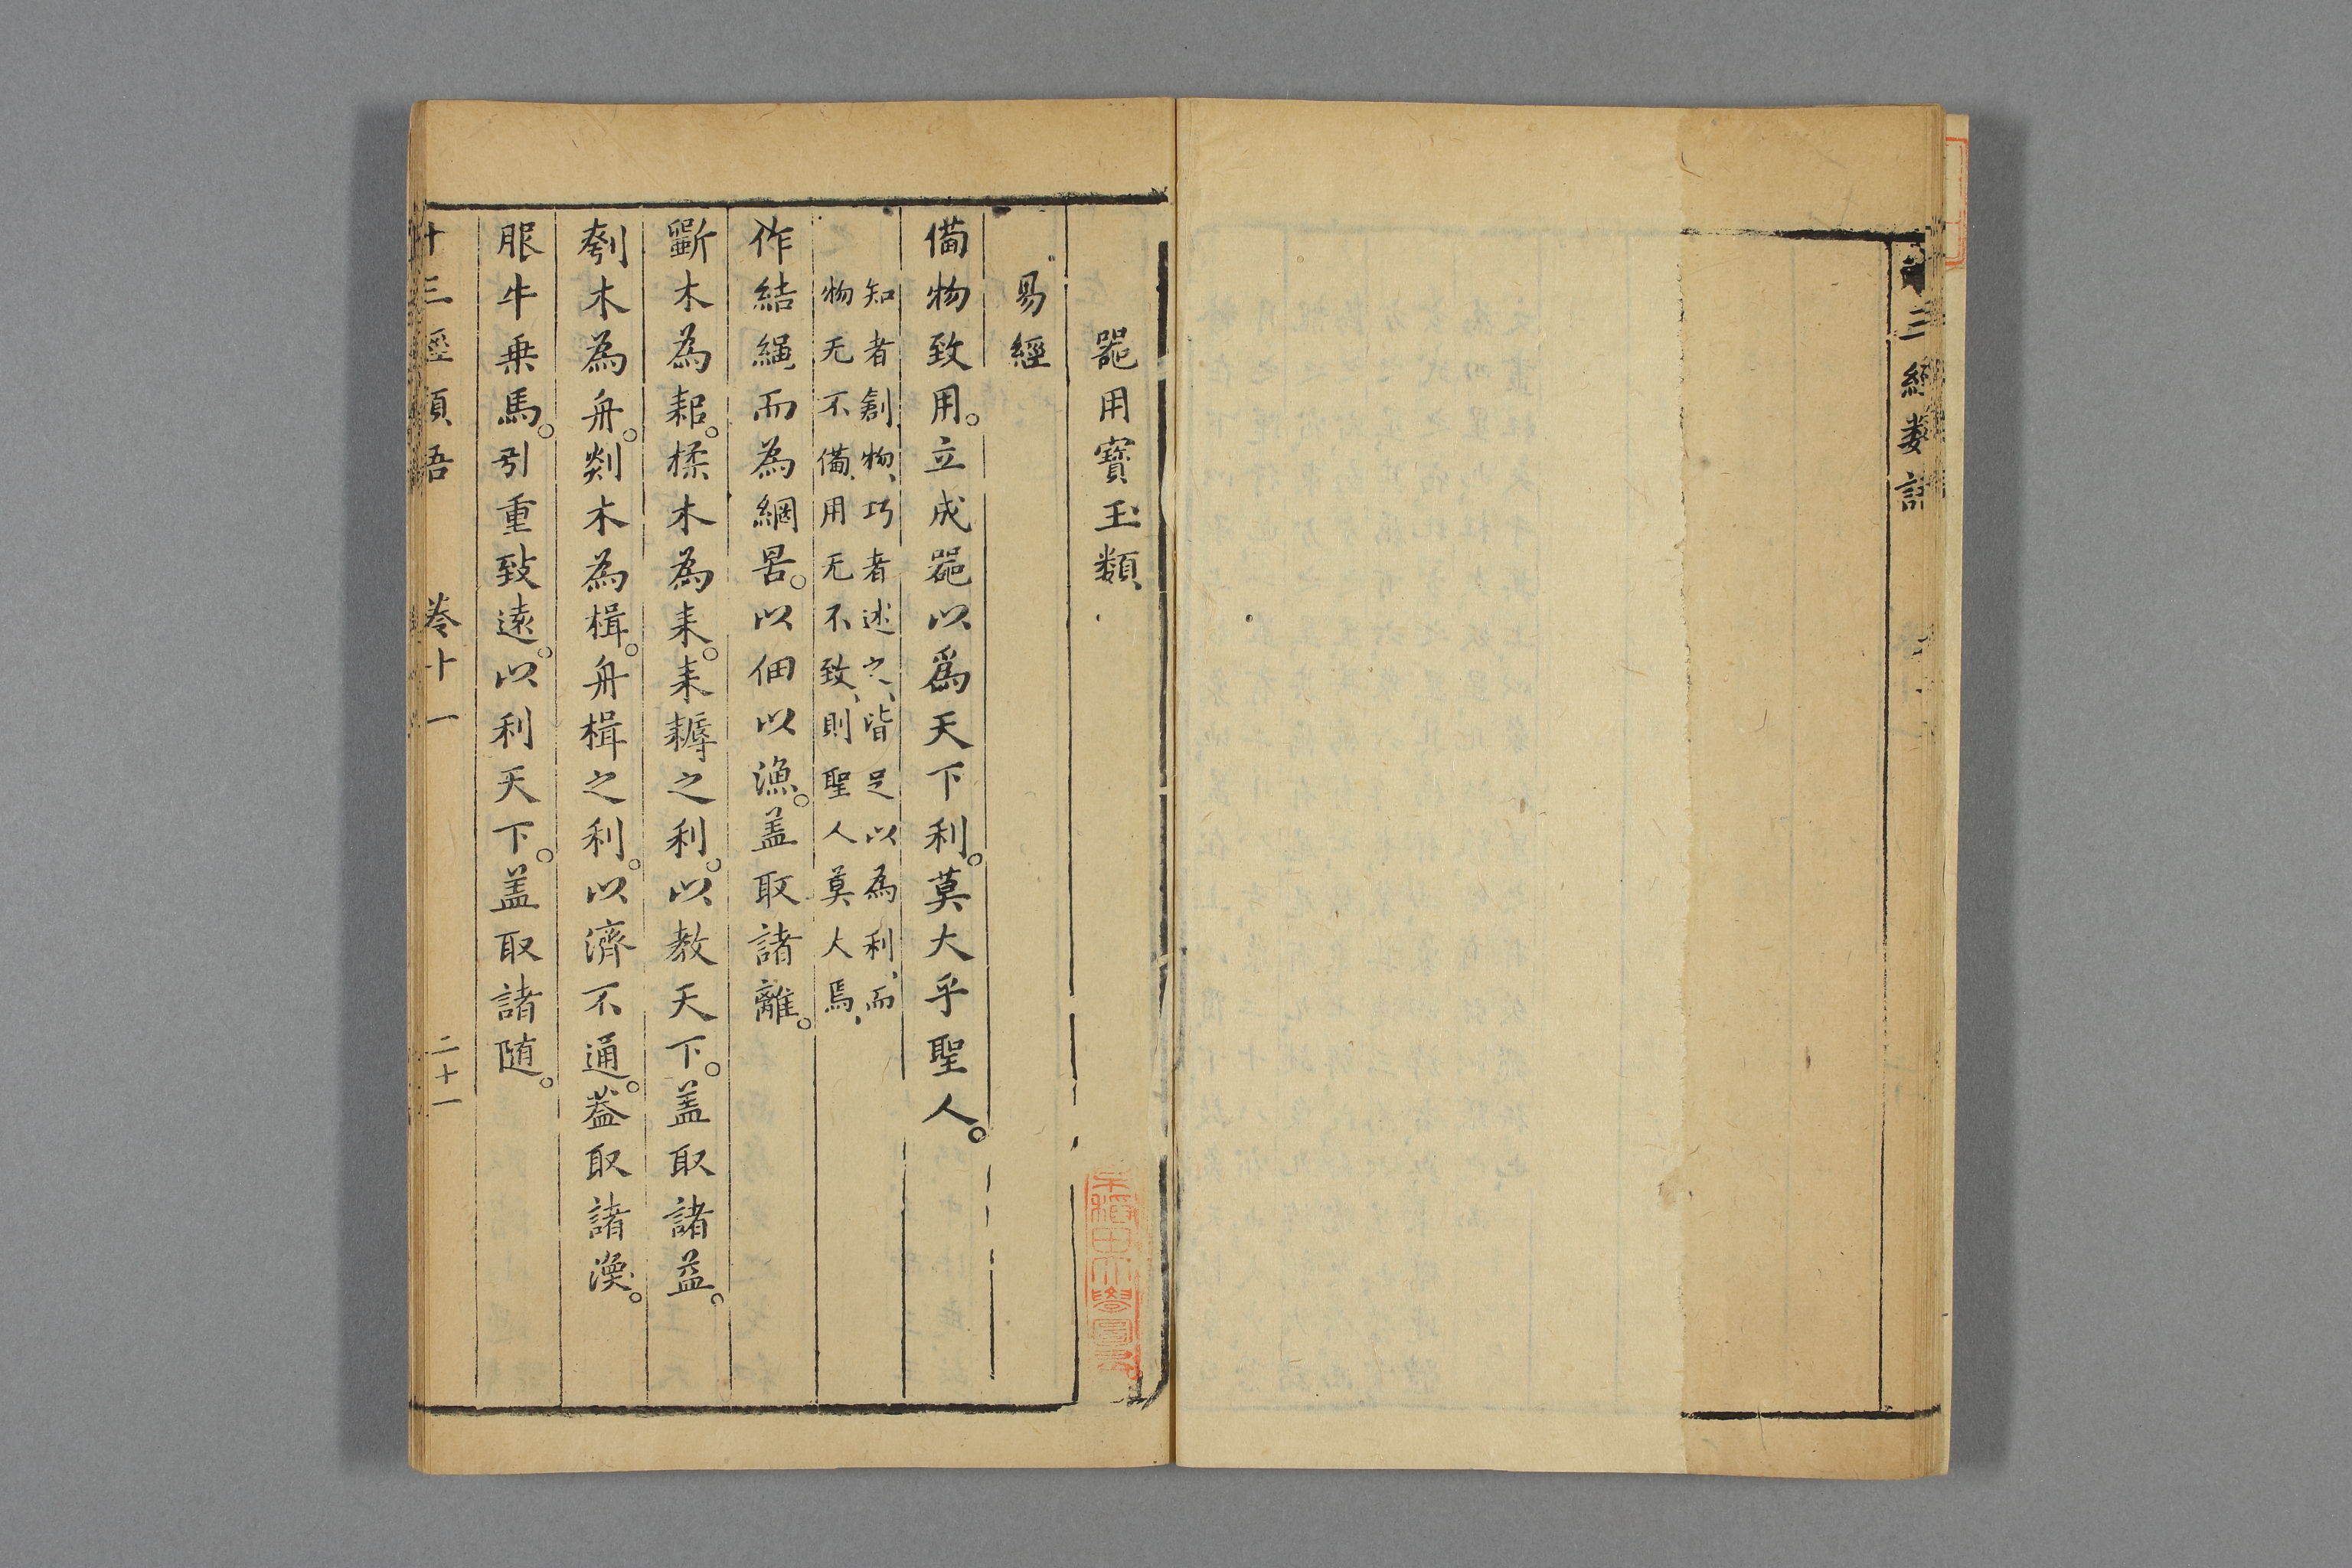 三經類語
器用寶玉類
易經
備物致用。立成器以為天下利。莫大乎聖人。
知者創物、巧者述之、皆足以為利、而
物无不備、用无不致、則聖人莫大焉、
作結繩而為網罟。以佃以漁。盖取諸離。
斵木為耜。揉木為耒。耒耨之利。以教天下。盖取諸益。
刳木為舟。剡木為楫。舟楫之利。以濟不通。盖取諸渙。
服牛乗馬。引重致遠。以利天下。盖取諸随。
十三經類語 卷十一 二十一
早稻田大學圖書